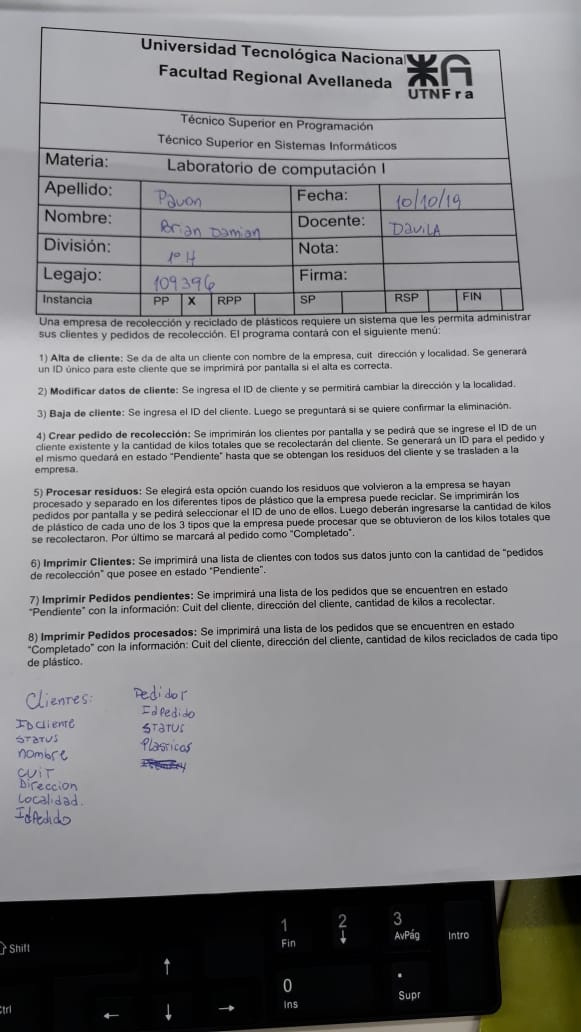 Universidad Tecnológica Nacional
Facultad Regional Avellaneda
UTNFra
Técnico Superior en Programación
Técnico Superior en Sistemas Informáticos
Materia: Laboratorio de computación I
Apellido: Pavon Fecha: 10/10/19
Nombre: Brian Damian Docente: Davila
División: 1º H Nota:
Legajo: 109396 Firma:
Instancia PP X RPP SP RSP FIN
Una empresa de recolección y reciclado de plásticos requiere un sistema que les permita administrar
sus clientes y pedidos de recolección. El programa contará con el siguiente menú:
1) Alta de cliente: Se da de alta un cliente con nombre de la empresa, cuit dirección y localidad. Se generará
un ID único para este cliente que se imprimirá por pantalla si el alta es correcta.
2) Modificar datos de cliente: Se ingresa el ID de cliente y se permitirá cambiar la dirección y la localidad.
3) Baja de cliente: Se ingresa el ID del cliente. Luego se preguntará si se quiere confirmar la eliminación.
4) Crear pedido de recolección: Se imprimirán los clientes por pantalla y se pedirá que se ingrese el ID de un
cliente existente y la cantidad de kilos totales que se recolectarán del cliente. Se generará un ID para el pedido y
el mismo quedará en estado "Pendiente" hasta que se obtengan los residuos del cliente y se trasladen a la
empresa.
5) Procesar residuos: Se elegirá esta opción cuando los residuos que volvieron a la empresa se hayan
procesado y separado en los difrentes tipos de plástico que la empresa puede reciclar. Se imprimirán los
pedidos por pantalla y se pedirá seleccionar el ID de uno de ellos. Luego deberán ingresarse la cantidad de kilos
de plástico de cada uno de los 3 tipos que la empresa puede procesar que se obtuvieron de los kilos totales que
se recolectaron. Por último se marcará al pedido como "Completado".
6) Imprimir Clientes: Se imprimirá una lista de clientes con todos sus datos junto con la cantidad de "pedidos
de recolección" que posee en estado "Pendiente".
7) Imprimir Pedidos pendientes: Se imprimirá una lista de los pedidos que se encuentren en estado
"Pendiente" con la información: Cuit del cliente, dirección del cliente, cantidad de kilos a recolectar.
8) Imprimir Pedidos procesados: Se imprimirá una lista de los pedidos que se encuentren en estado
"Completado" con la información: Cuit del cliente, dirección del cliente, cantidad de kilos reciclados de cada tipo
de plástico.
Clientes:
IDcliente
STATUS
nombre
CUIT
Direccion
Localidad.
IdPedido
Pedidos
IdPedido
STATUS
Plasticos
Shift
1
Fin
2
↓
3
AvPág
Intro
↑
0
Ins
.
Supr
←
↓
→